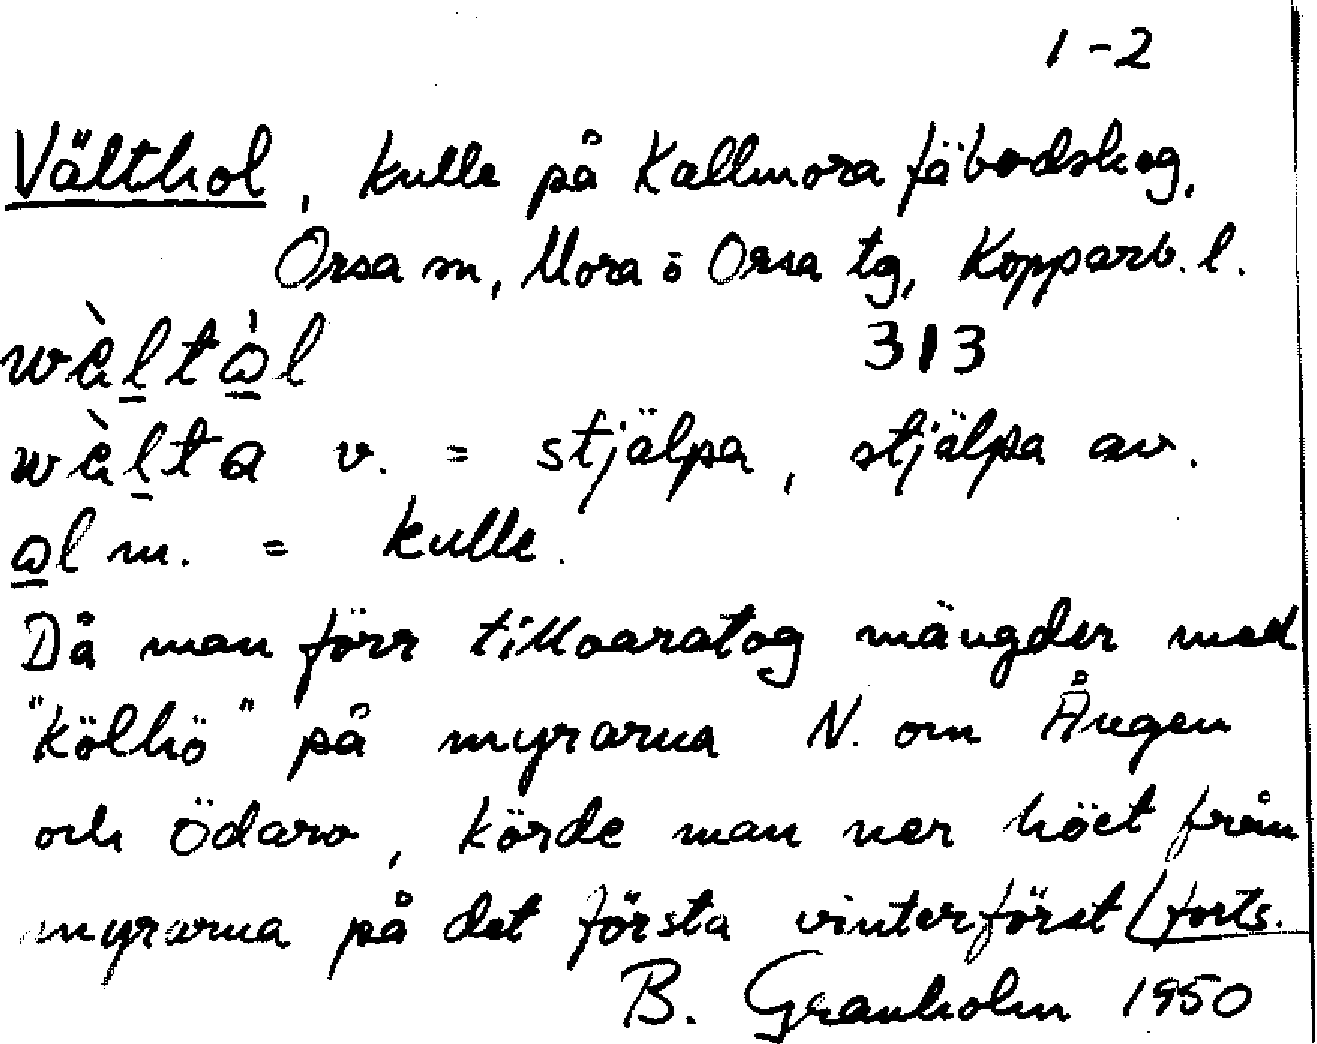 1-2
Välthol, kulle på Kallmora fäbodskog,
Orsa sn, Mora o Orsa tg, Kopparb. l.
wὲltɑ̀l 313
wὲlta v. = stjälpa, stjälpa av.
ɑl m. = kulle.
Då man förr tillvaratog mängder med
"kölhö" på myrarna N. om Ången
och Ödarv, körde man ner höet från
myrarna på det första vinterföret /forts.
B. Granholm 1950